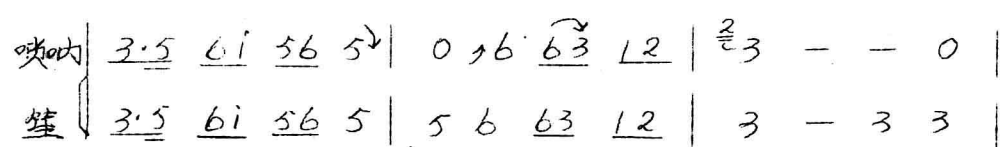 唢呐 3·5 6i 56 5 | 0 6 63 12 | 2 3 — — 0 |
笙 3·5 6i 56 5 | 5 6 63 12 | 3 — 3 3 |